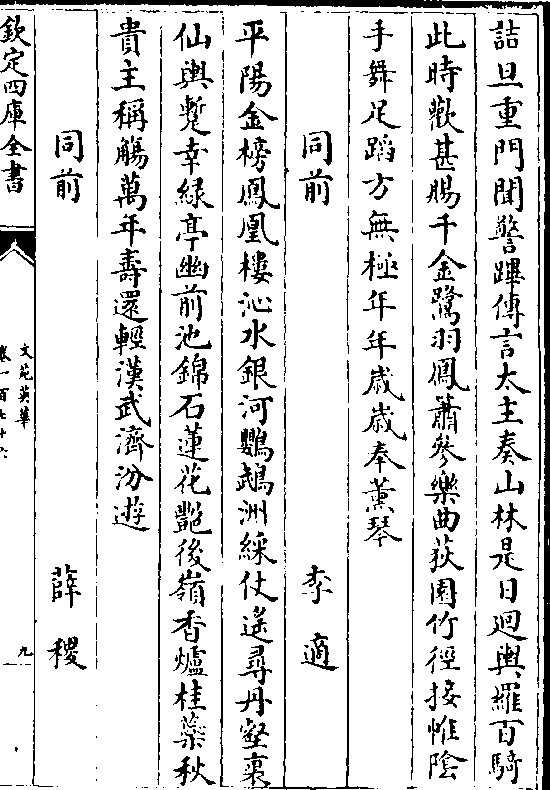 詰旦重門聞警蹕傳言太主奏山林是日迴輿羅百騎
此時歡甚賜千金鷺羽鳳蕭參樂曲荻園竹徑接帷陰
手舞足蹈方無極年年歲歲奉薰琴
同前 李適
平陽金榜鳳凰樓沁水銀河鸚鵡洲綵仗遙尋丹壑裏
仙輿蹔幸綠亭幽前池錦石蓮花豔後嶺香爐桂蘂秋
貴主稱觴萬年壽還輕漢武濟汾遊
同前 薛稷
欽定四庫全書
文苑英華
卷一百七十六
九